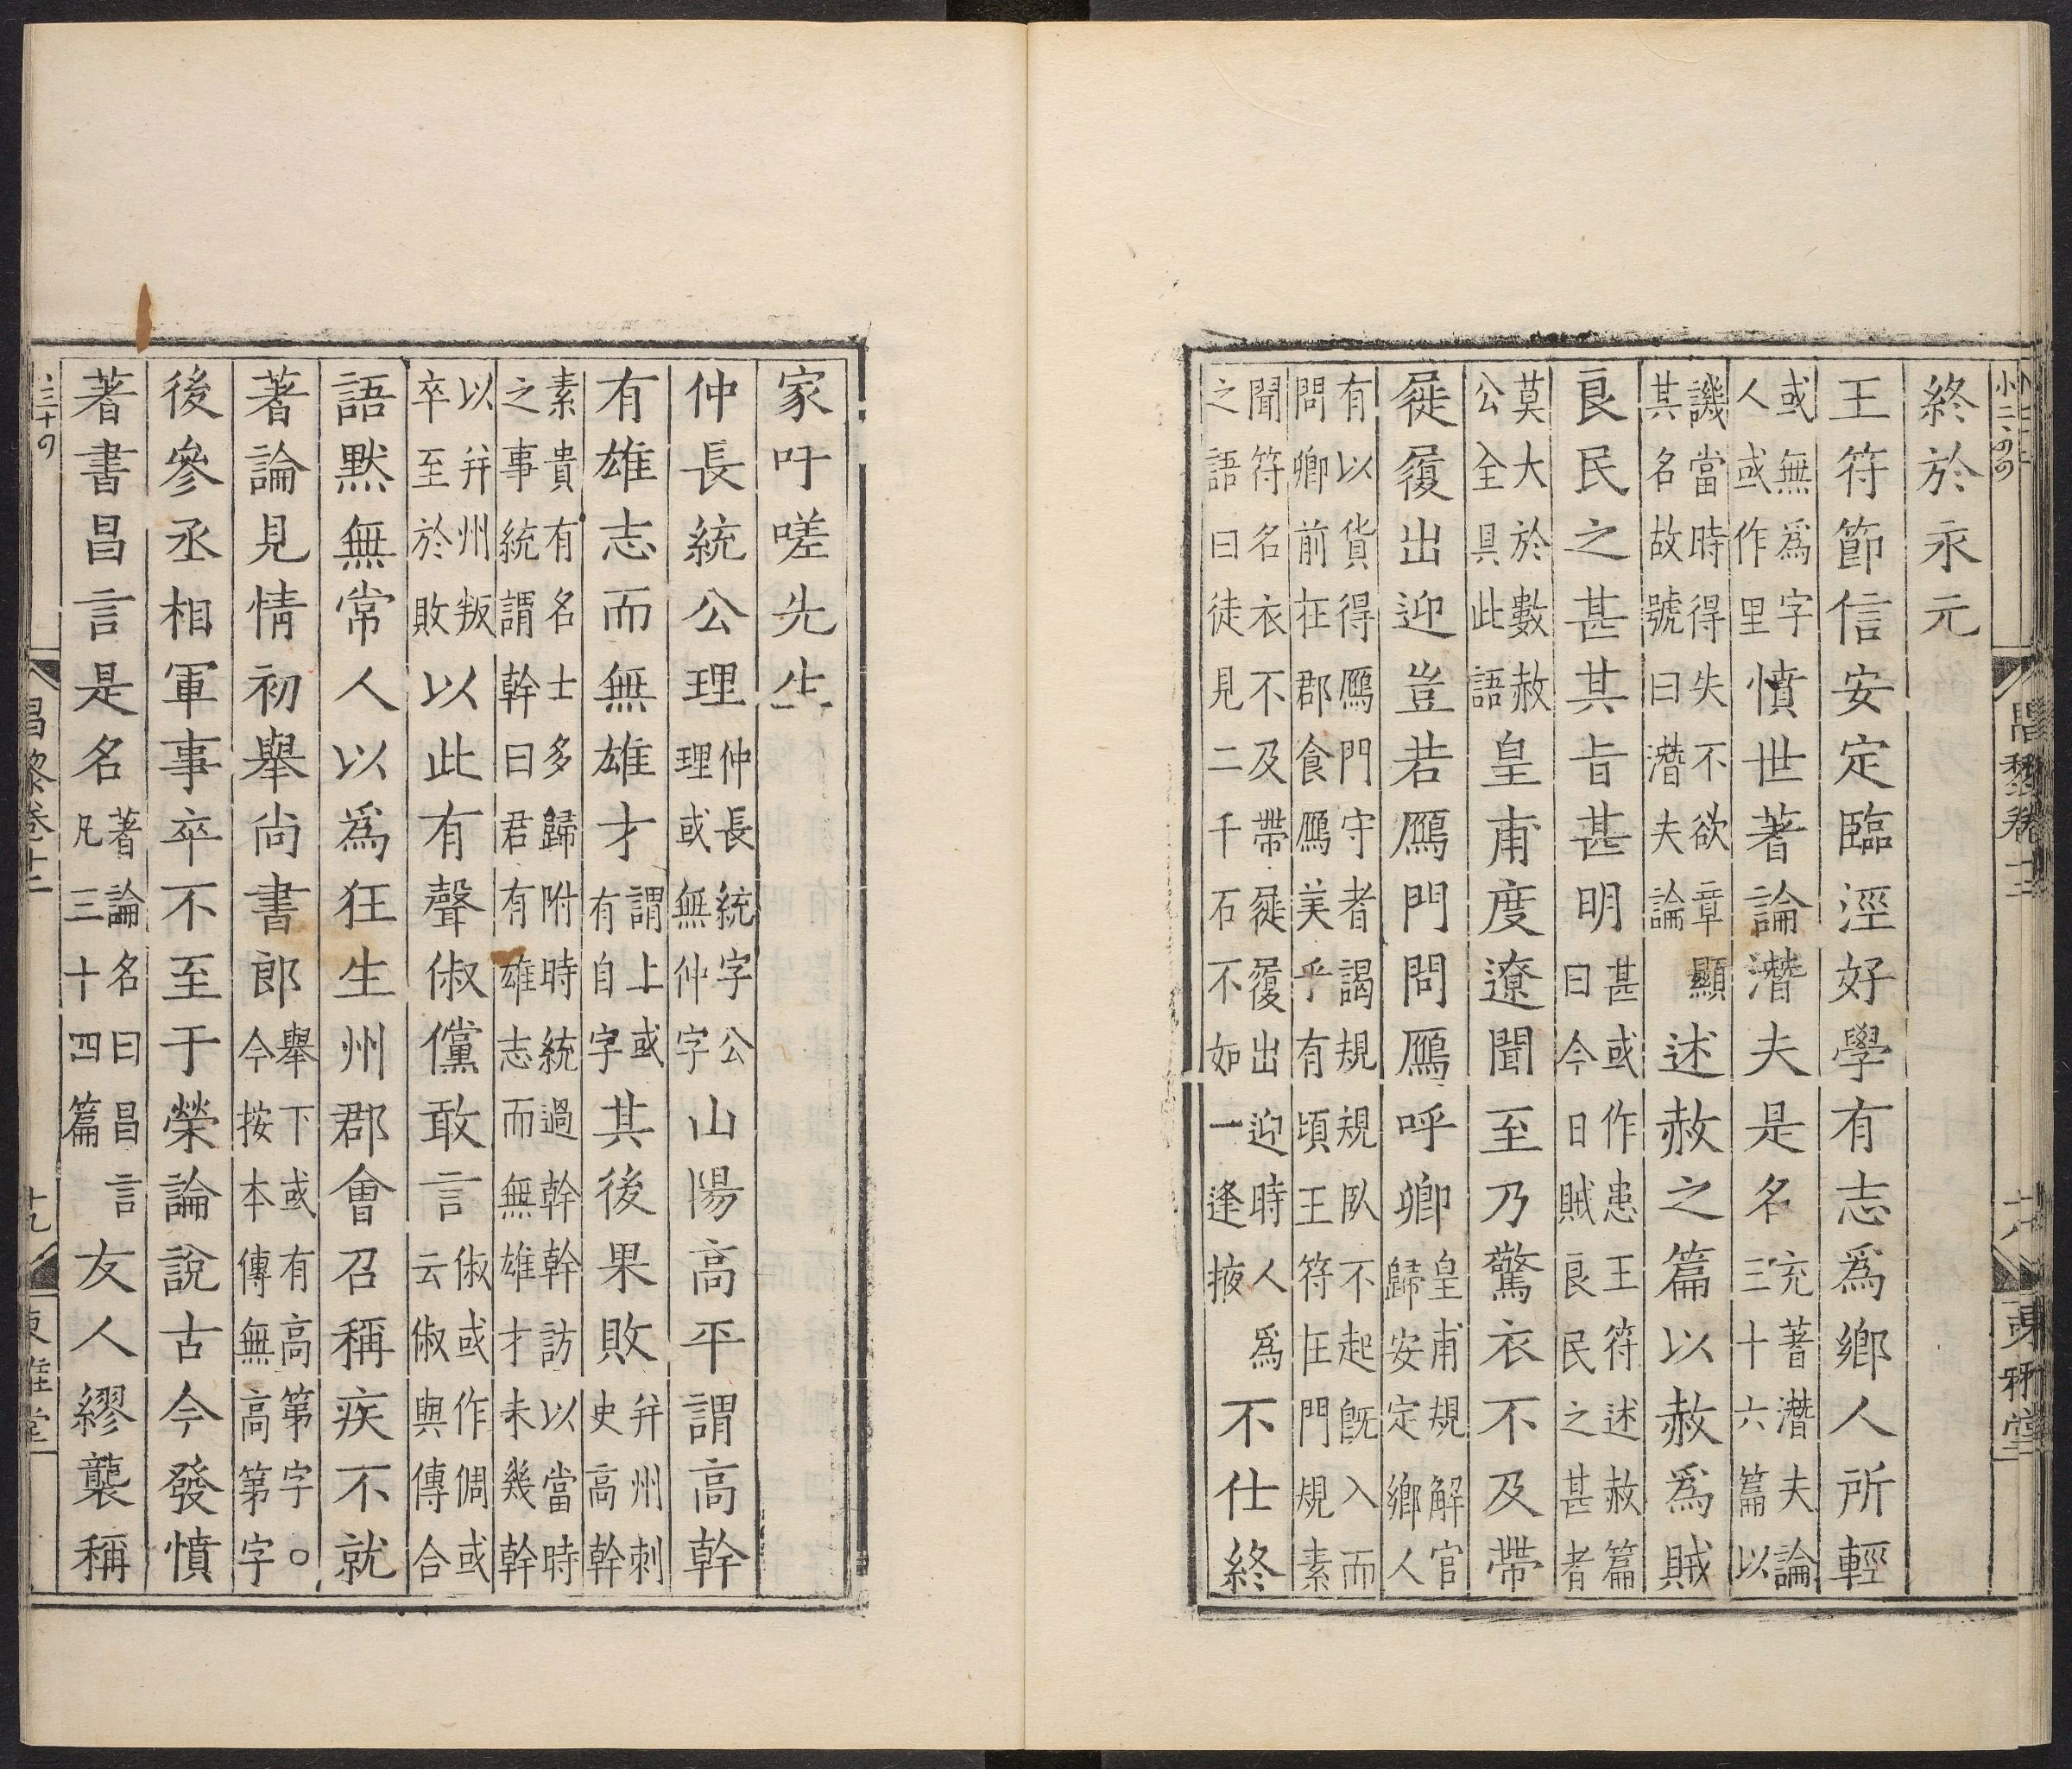 終於永元
王符節信安定臨涇好學有志爲鄉人所輕
或無爲字人或作里憤世著論潛夫是名充著潛夫論三十六篇以
譏當時得失不欲章顯其名故號曰潛夫論述赦之篇以赦爲賊
良民之甚其旨甚明甚或作患王符述赦篇曰今日賊良民之甚者
莫大於數赦公全具此語皇甫度遼聞至乃驚衣不及帶
屣履出迎豈若鴈門問鴈呼卿皇甫規解官歸安定鄉人
有以貨得鴈門守者謁規規臥不起旣入而問卿前在郡食鴈美乎有頃王符在門規素
聞符名衣不及帶屣履出迎時人爲之語曰徒見二千石不如一逢掖不仕終
昌黎卷十二
十八
東雅堂
家吁嗟先生
仲長統公理仲長統字公理或無仲字山陽高平謂高幹
有雄志而無雄才謂上或有自字其後果敗并州刺史高幹
素貴有名士多歸附時統過幹幹訪以當時之事統謂幹曰君有雄志而無雄才未幾幹
以并州叛卒至於敗以此有聲俶儻敢言俶或作倜或云俶與傳合
語默無常人以爲狂生州郡會召稱疾不就
著論見情初舉尚書郎舉下或有高第字○今按本傳無高第字
後參丞相軍事卒不至于榮論說古今發憤
著書昌言是名著論名曰昌言凡三十四篇友人繆襲稱
昌黎卷十二
十九
東雅堂